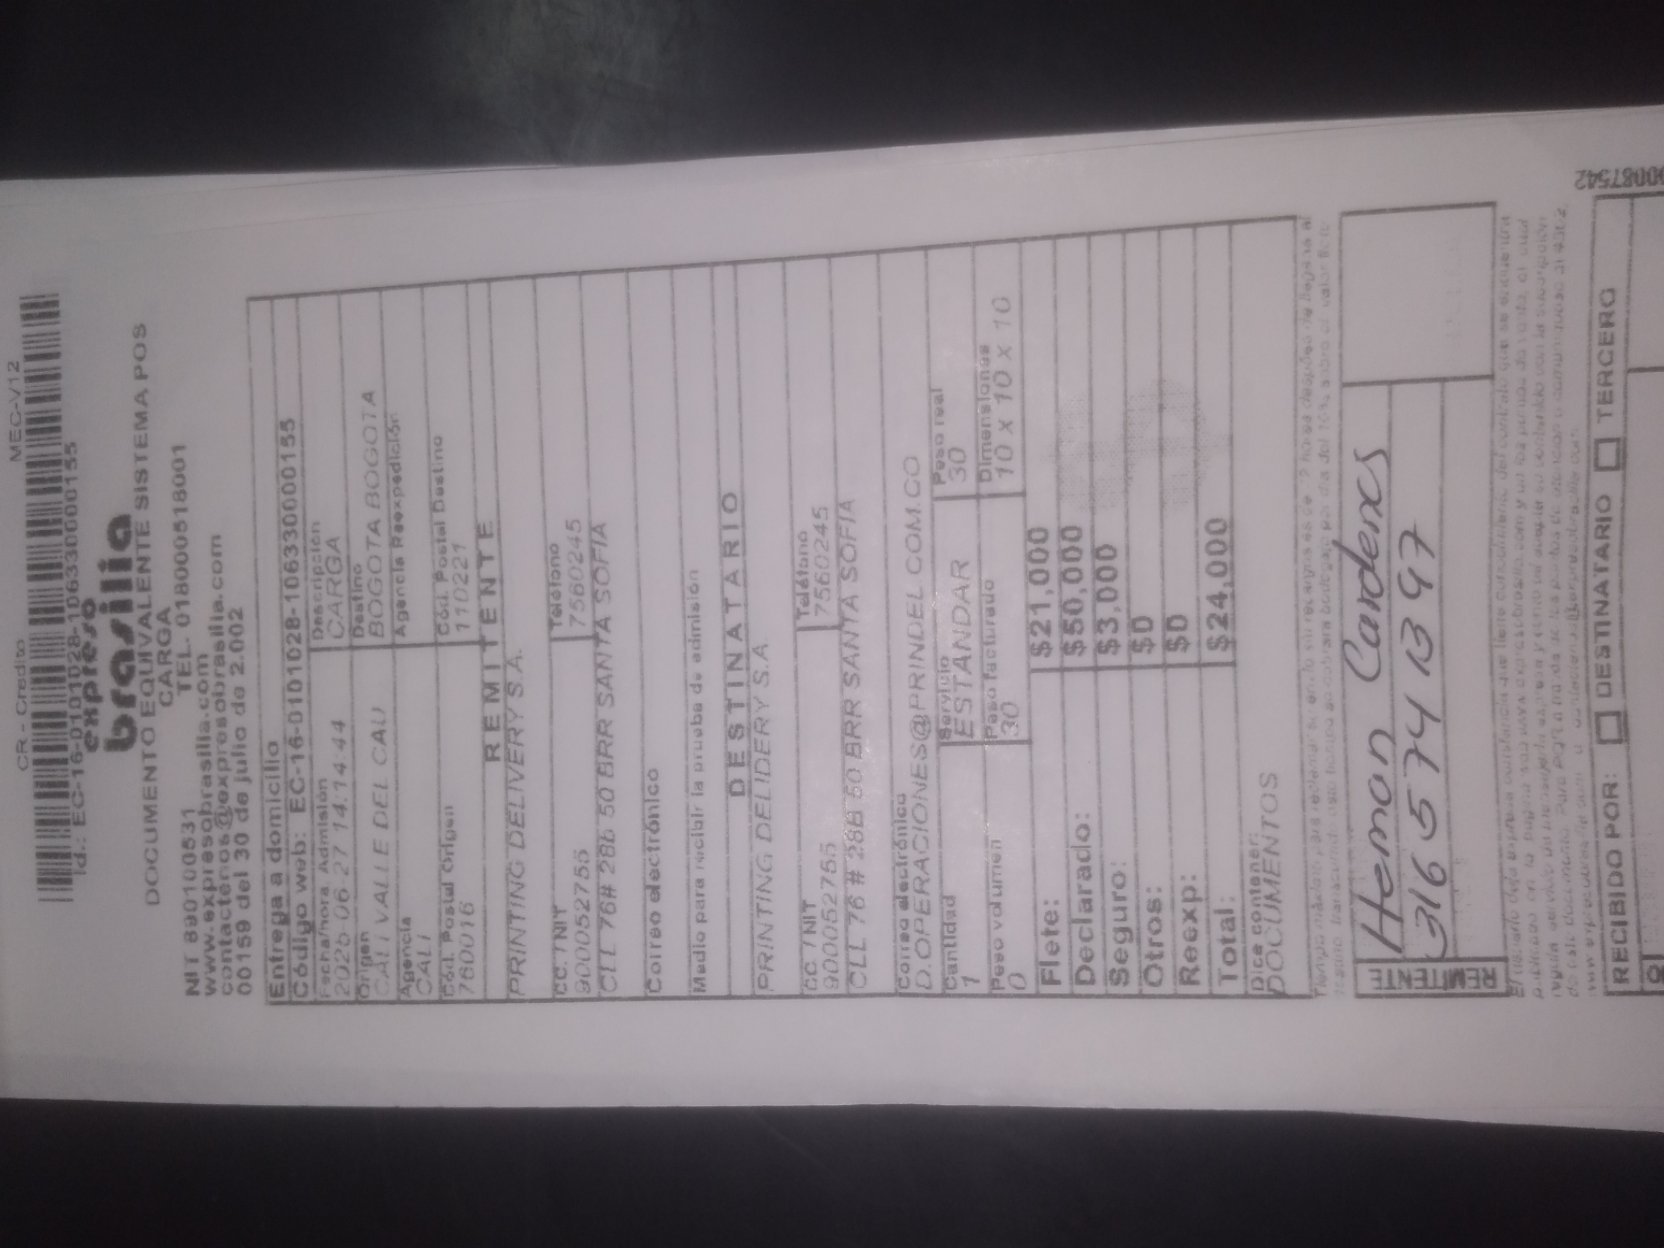 CR - Credito MEC-V12
Id.: EC-16-0101028-1063300000155
expreso
brasilia
DOCUMENTO EQUIVALENTE SISTEMA POS
CARGA
NIT 890100531 TEL. 018000518001
www.expresobrasilia.com
contactenos@expresobrasilia.com
00159 del 30 de julio de 2.002
Entrega a domicilio
Código web: EC-16-0101028-1063300000155
Fecha/hora Admisión Descripción
14:14:44 CARGA
Origen Destino
CALI VALLE DEL CAU BOGOTA BOGOTA
Agencia Agencia Reexpedición
CALI
Cód. Postal Origen Cód. Postal Destino
760016 110221
REMITENTE
PRINTING DELIVERY S.A.
CC. / NIT Teléfono
9000052755 7560245
CLL 76# 28b 50 BRR SANTA SOFIA
Correo electrónico
Medio para recibir la prueba de admisión
DESTINATARIO
PRINTING DELIDERY S.A
CC. / NIT Teléfono
9000052755 7560245
CLL 76 # 28B 50 BRR SANTA SOFIA
Correo electrónico
D.OPERACIONES@PRINDEL.COM.CO
Cantidad Servicio Peso real
1 ESTANDAR 30
Peso volumen Peso facturado Dimensiones
0 30 10 x 10 x 10
Flete: $21,000
Declarado: $50,000
Seguro: $3,000
Otros: $0
Reexp: $0
Total: $24,000
Dice contener:
DOCUMENTOS
REMITENTE
Hernan Cardenas
316 574 1397
00087542
RECIBIDO POR: DESTINATARIO TERCERO